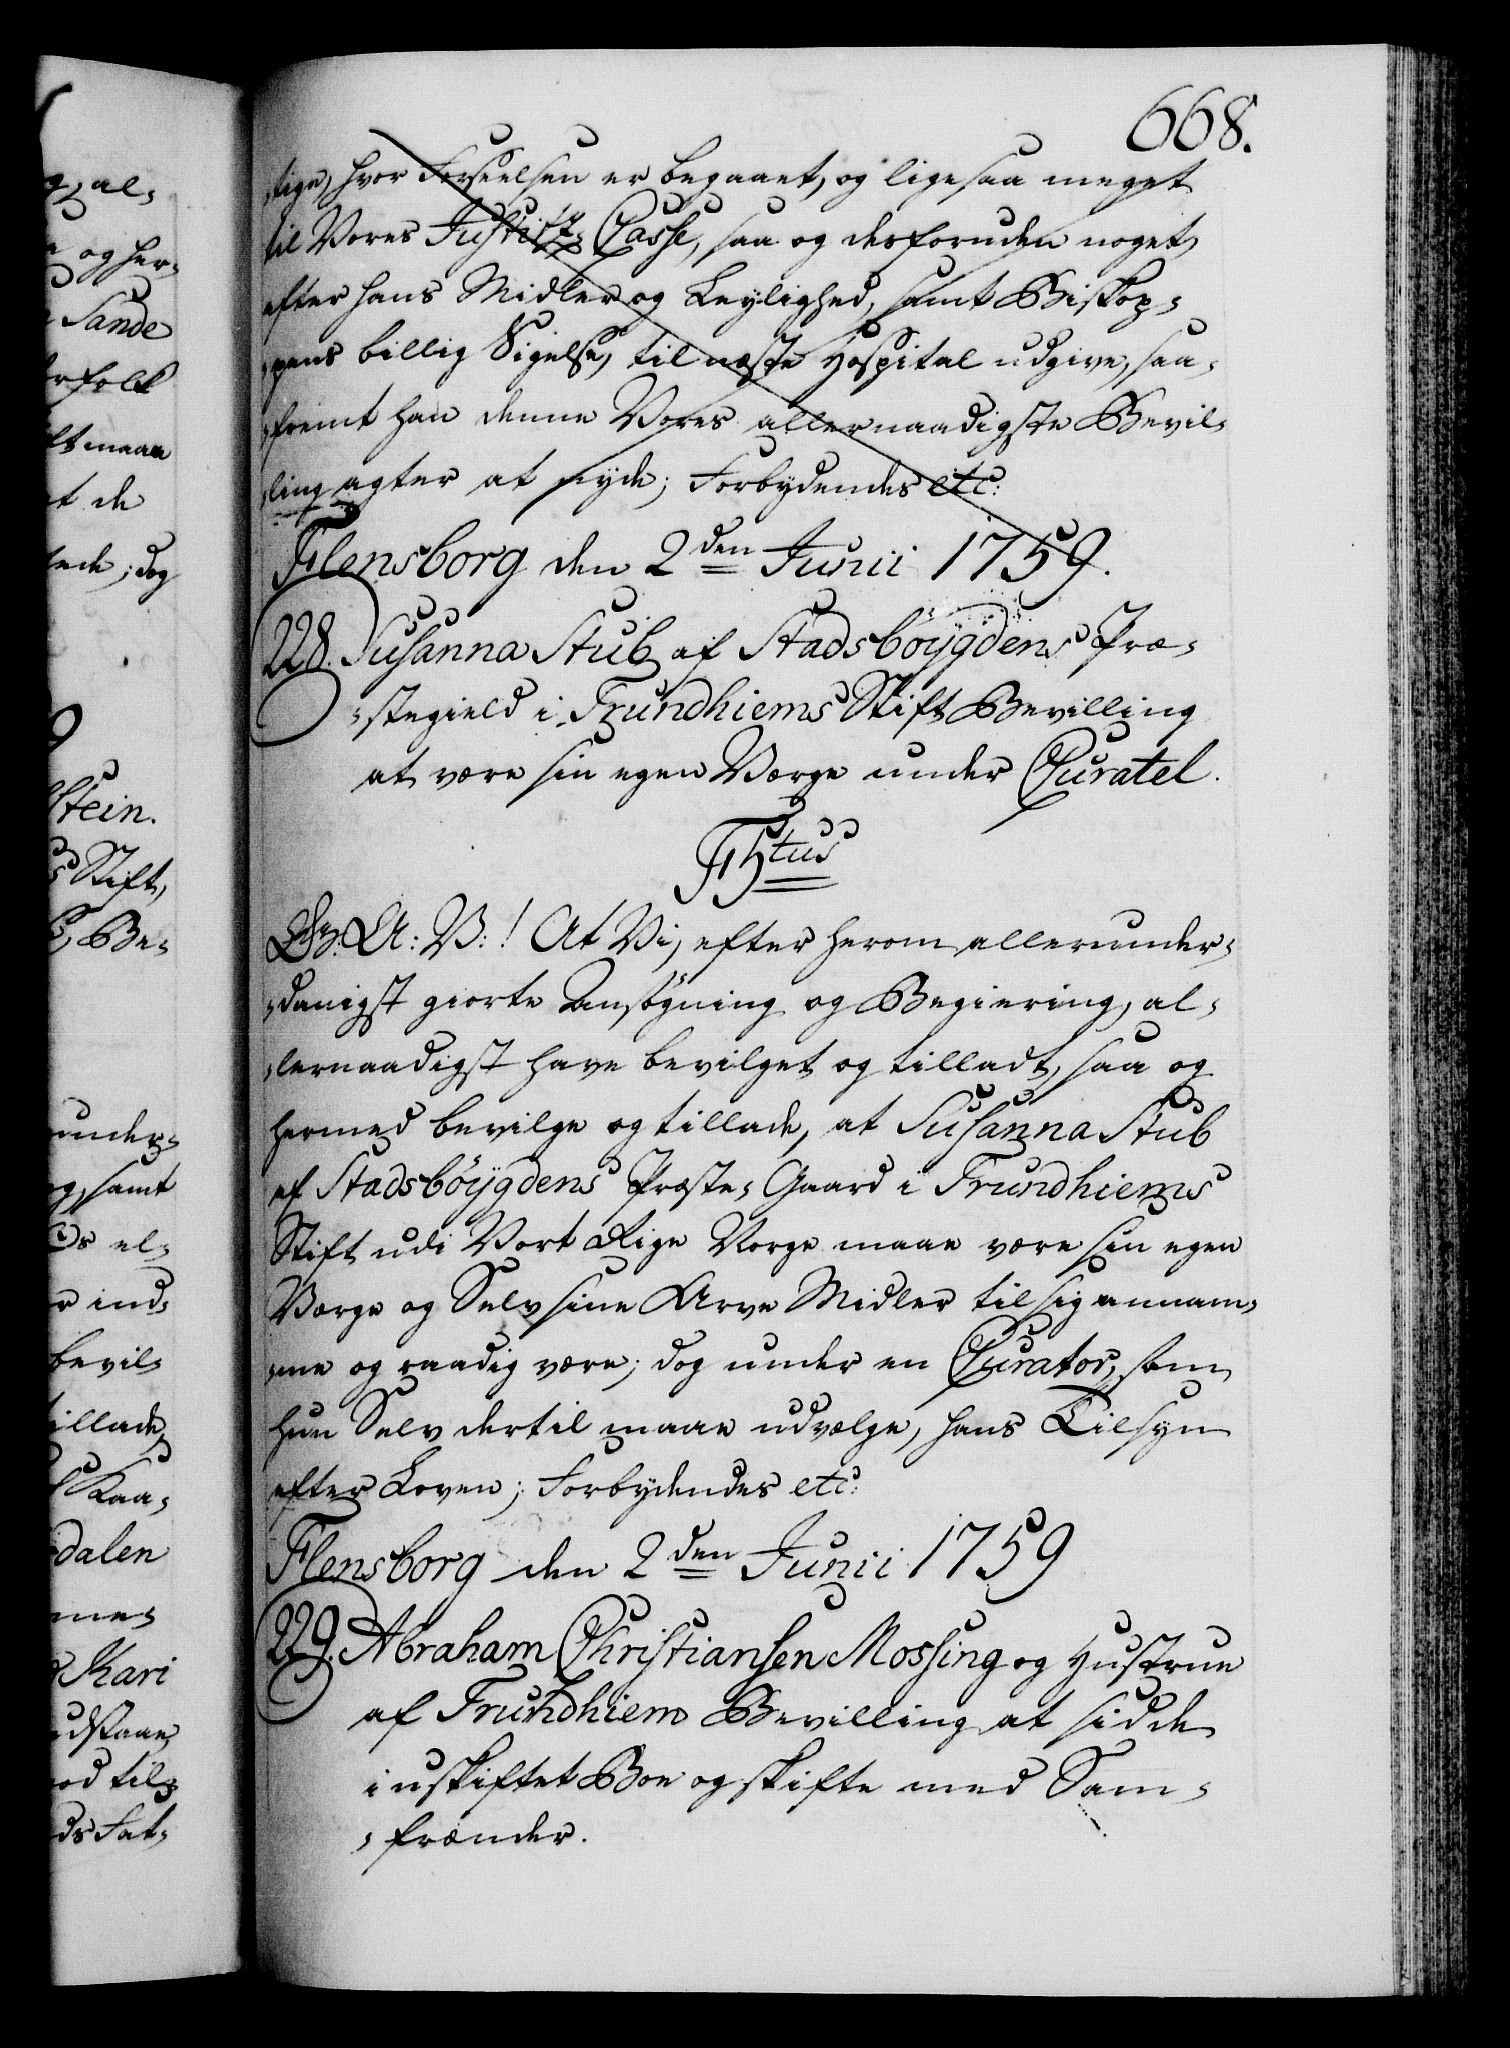 668.
tige, hvor Forseelsen er begaaet, og ligesaa meget
til Vores Justitz-Casse, saa og desforuden noget
efter hans Midler og Leylighed, samt Biskop-
pens billig Sigelse, til næste Hospital udgive, saa-
fremt han denne Vores allernaadigste Bevil-
ling agter at nyde; Forbydendes etc:
Flensborg den 2den Junii 1759.
228. Susanna Stub af Stadsböÿgdens Præ-
stegield i Trundhiems Stift Bevilling
at være sin egen Værge under Curatel.
F5tus
Gr: A: V: ! At Vi, efter herom allerunder-
danigst giorte Ansögning og Begiering, al-
lernaadigst have bevilget og tilladt, saa og
hermed bevilge og tillade, at Susanna Stub
af Stadsböÿgdens Præste-Gaard i Trundhiems
Stift udi Vort Rige Norge maae være sin egen
Værge og Selv sine Arve Midler til sig annam-
me og raadig være; dog under en Curator, som
hun Selv dertil maae udvælge, hans Tilsyn
efter Loven; Forbydendes etc:
Flensborg den 2den Junii 1759
229. Abraham Christiansen Mossing og Hustrue
af Trundhiem Bevilling at sidde
i uskiftet Boe og skifte med Sam-
frænder.
g, al-
og her-
Sande
rfolk
ltmaae
et de
ede; dog
Stein.
s Stift,
Be-
under-
g, samt
el-
r ind-
bevil-
illade,
Kaa-
dalen
Kari
udstaae,
od til
ds Fat-